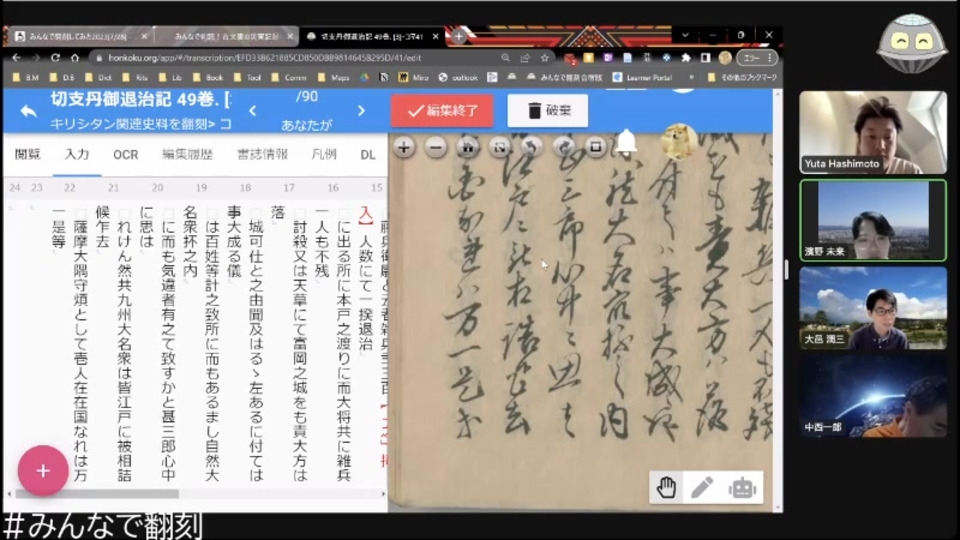 みんなで翻刻してみた2023[7/28]
みんなで翻刻！古文書の災害記録
切支丹御退治記 49巻. [3] - コマ41
honkoku.org/app/#/transcription/EFD33B621885CD850DBB9814645B295D/41/edit
エラー
B.M D.B Dict Rits Lib Book Tool Comm Maps Miro outlook みんなで翻刻合宿版 Learner Portal その他のブックマーク
切支丹御退治記 49巻. [
キリシタン関連史料を翻刻> コ
/90
あなたが
編集終了
破棄
閲覧 入力 OCR 編集履歴 書誌情報 凡例 DL
24 23 22 21 20 19 18 17 16 15
入】人数にて一揆退治
に出る所に本戸之渡りに而大将共に雑兵
一人も不残
討殺又は天草にて富岡之城をも責大方は
落
城可仕と之由聞及はるゝ左あるに付ては
事大成る儀
は百姓等計之致所に而もあるまし自然大
名衆抔之内
に而も気違者有之て致すかと甚三郎心中
に思は
れけん然共九州大名衆は皆江戸に被相詰
候乍去
薩摩大隅守煩として壱人在在国なれは万
一是等
Yuta Hashimoto
濱野 未来
大邑 潤三
中西一郎
#みんなで翻刻